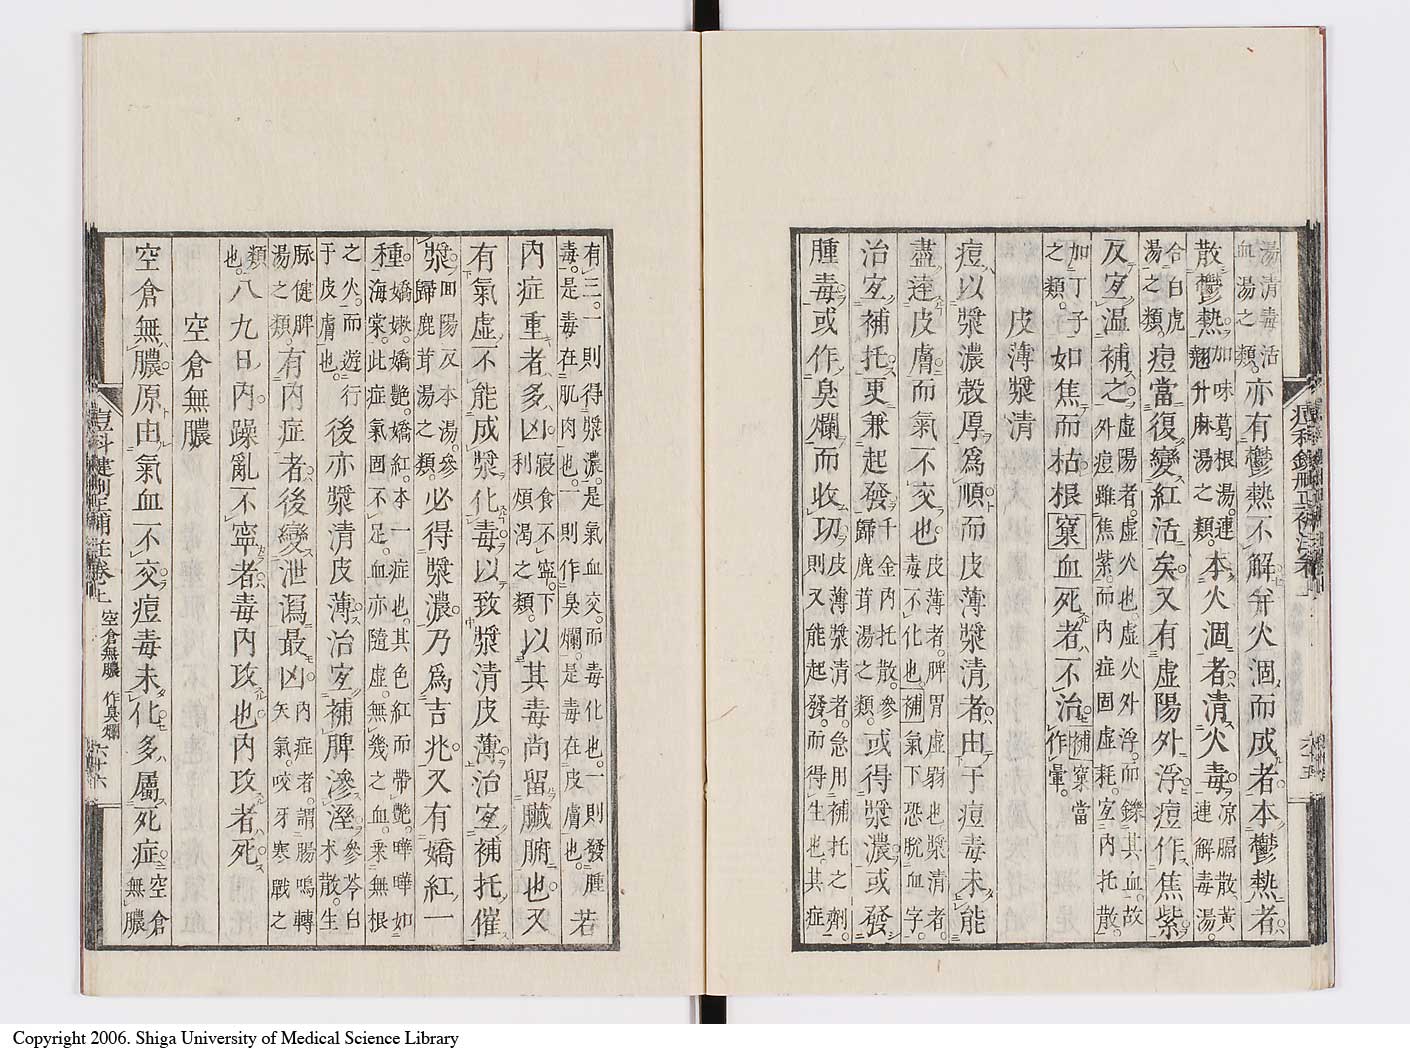 湯清毒活血湯之類亦有鬱熱不解弁火涸而成者本鬱熱者
散鬱熱加味葛根湯連翹升麻湯之類本火涸者清火毒涼膈散黃連解毒湯
合白虎湯之類痘當復變紅活矣又有虛陽外浮痘作焦紫
反宜温補之虛陽者虛火也虛火外浮而鑠其血故外痘雖焦紫而內症固虛耗宜內托散
加丁子之類如焦而枯根窠血死者不治補窠當作暈
皮薄漿清
痘以漿濃殼厚爲順而皮薄漿清者由于痘毒未能
盡達皮膚而氣不交也皮薄者脾胃虛弱也漿清者毒不化也補氣下恐脫血字
治宜補托更兼起發千金內托散參歸鹿茸湯之類或得漿濃或發
腫毒或作臭爛而收功皮薄漿清者急用補托之劑則又能起發而得生也其症
有三一則得漿濃是氣血交而毒化也一則發腫毒是毒在肌肉也一則作臭爛是毒在皮膚也若
內症重者多凶寢食不寧下利煩渴之類以其毒尚留臟腑也又
有氣虛不能成漿化毒以致漿清皮薄治宜補托催
漿回陽反本湯參歸鹿茸湯之類必得漿濃乃爲吉兆又有嬌紅一
種嬌嫩嬌艷嬌紅本一症也其色紅而帶艷曄曄如海棠此症氣固不足血亦隨虛無幾之血乘無根
之火而遊行于皮膚也後亦漿清皮薄治宜補脾滲溼參苓白朮散生
脉健脾湯之類有內症者後變泄瀉最凶內症者謂腸鳴轉矢氣咬牙寒戰之
類也八九日內躁亂不寧者毒內攻也內攻者死
空倉無膿
空倉無膿原由氣血不交痘毒未化多屬死症空倉無膿
痘科鍵刪正補註卷上 空倉無膿 作臭爛 六十六